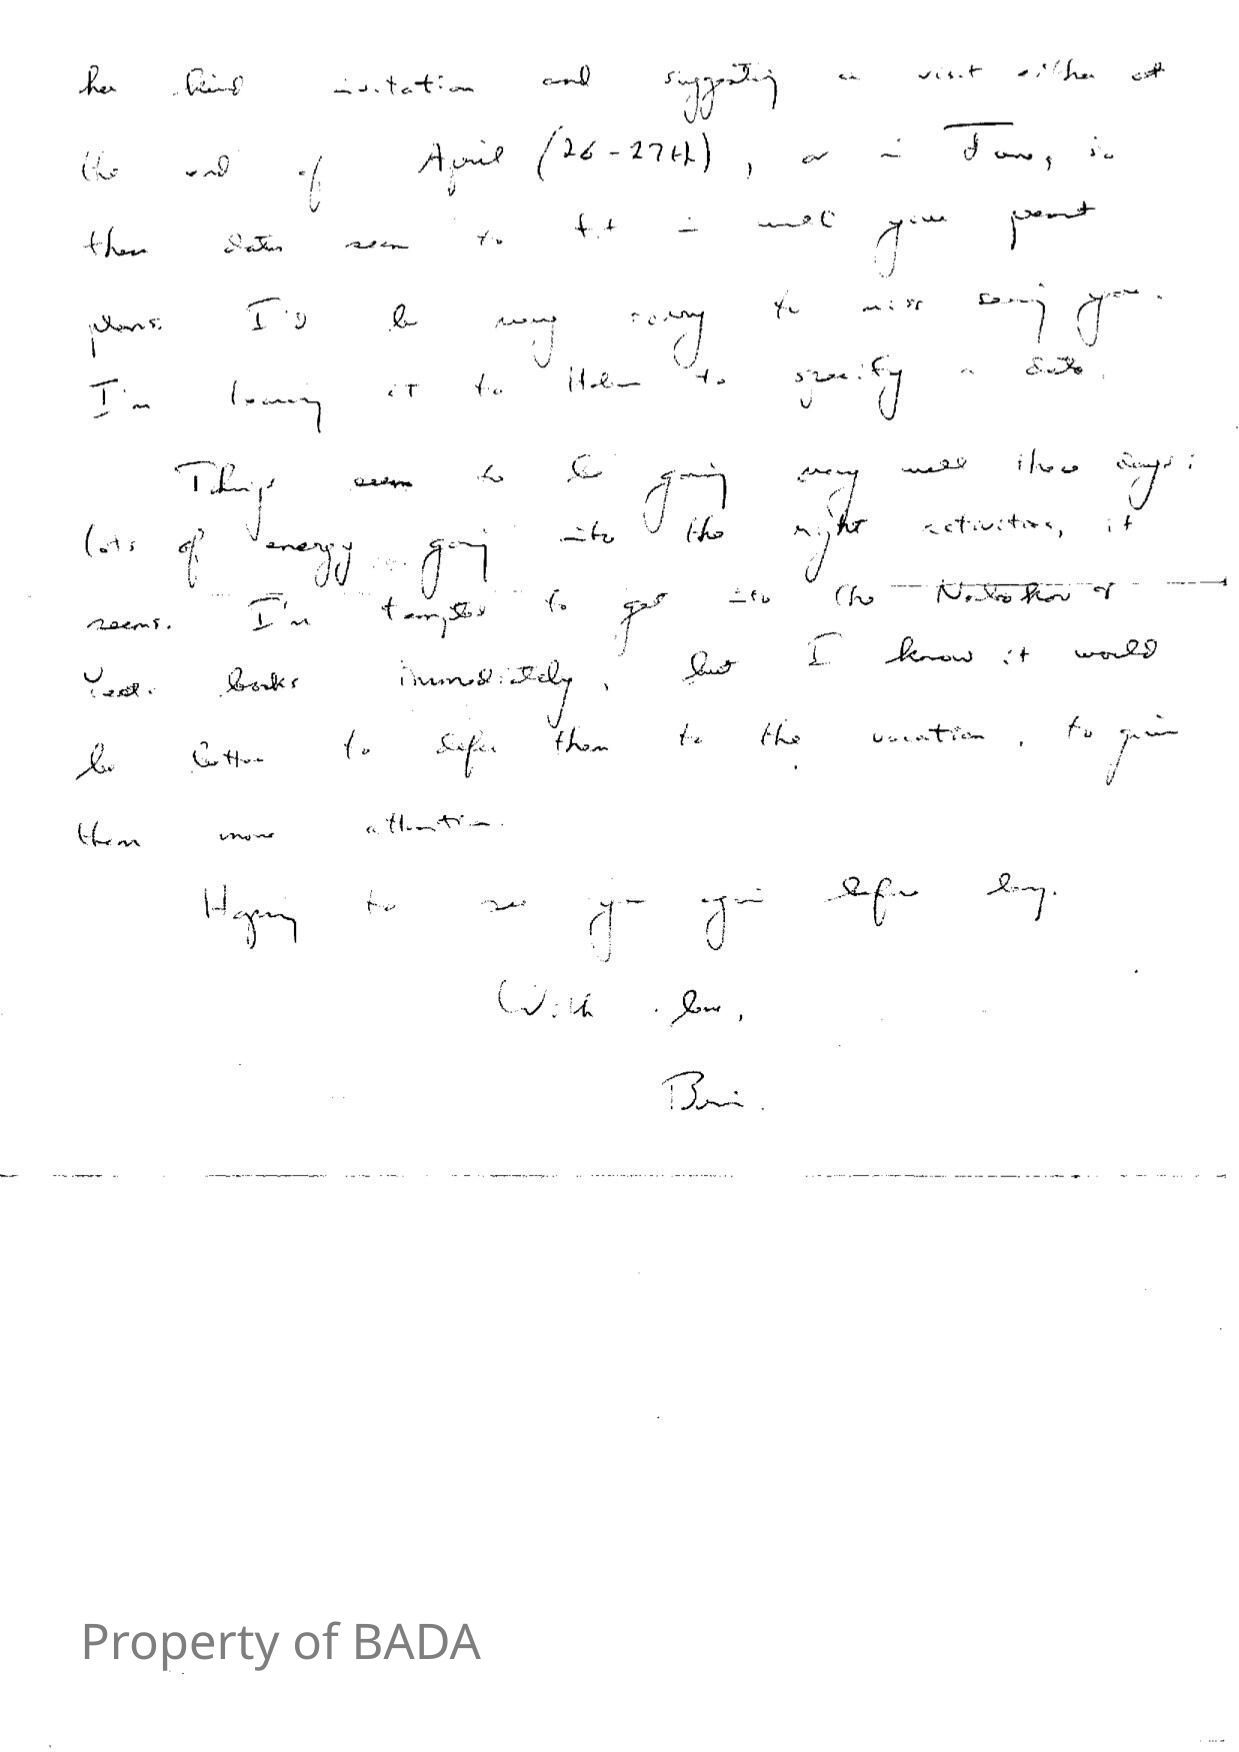 her kind invitation and suggesting a visit either at
the end of April (26-27th), or in June, so
these dates seem to fit in well your present
plans. I'd be very sorry to miss seeing you.
I'm leaving it to Helen to specify a date.
Things seem to be going very well these days:
lots of energy going into the right activities, it
seems. I'm tempted to get into the
books immediately, but I know it would
be better to defer them to the vacation, to give
them more attention.
Hoping to see you again before long.
With love,
Property of BADA